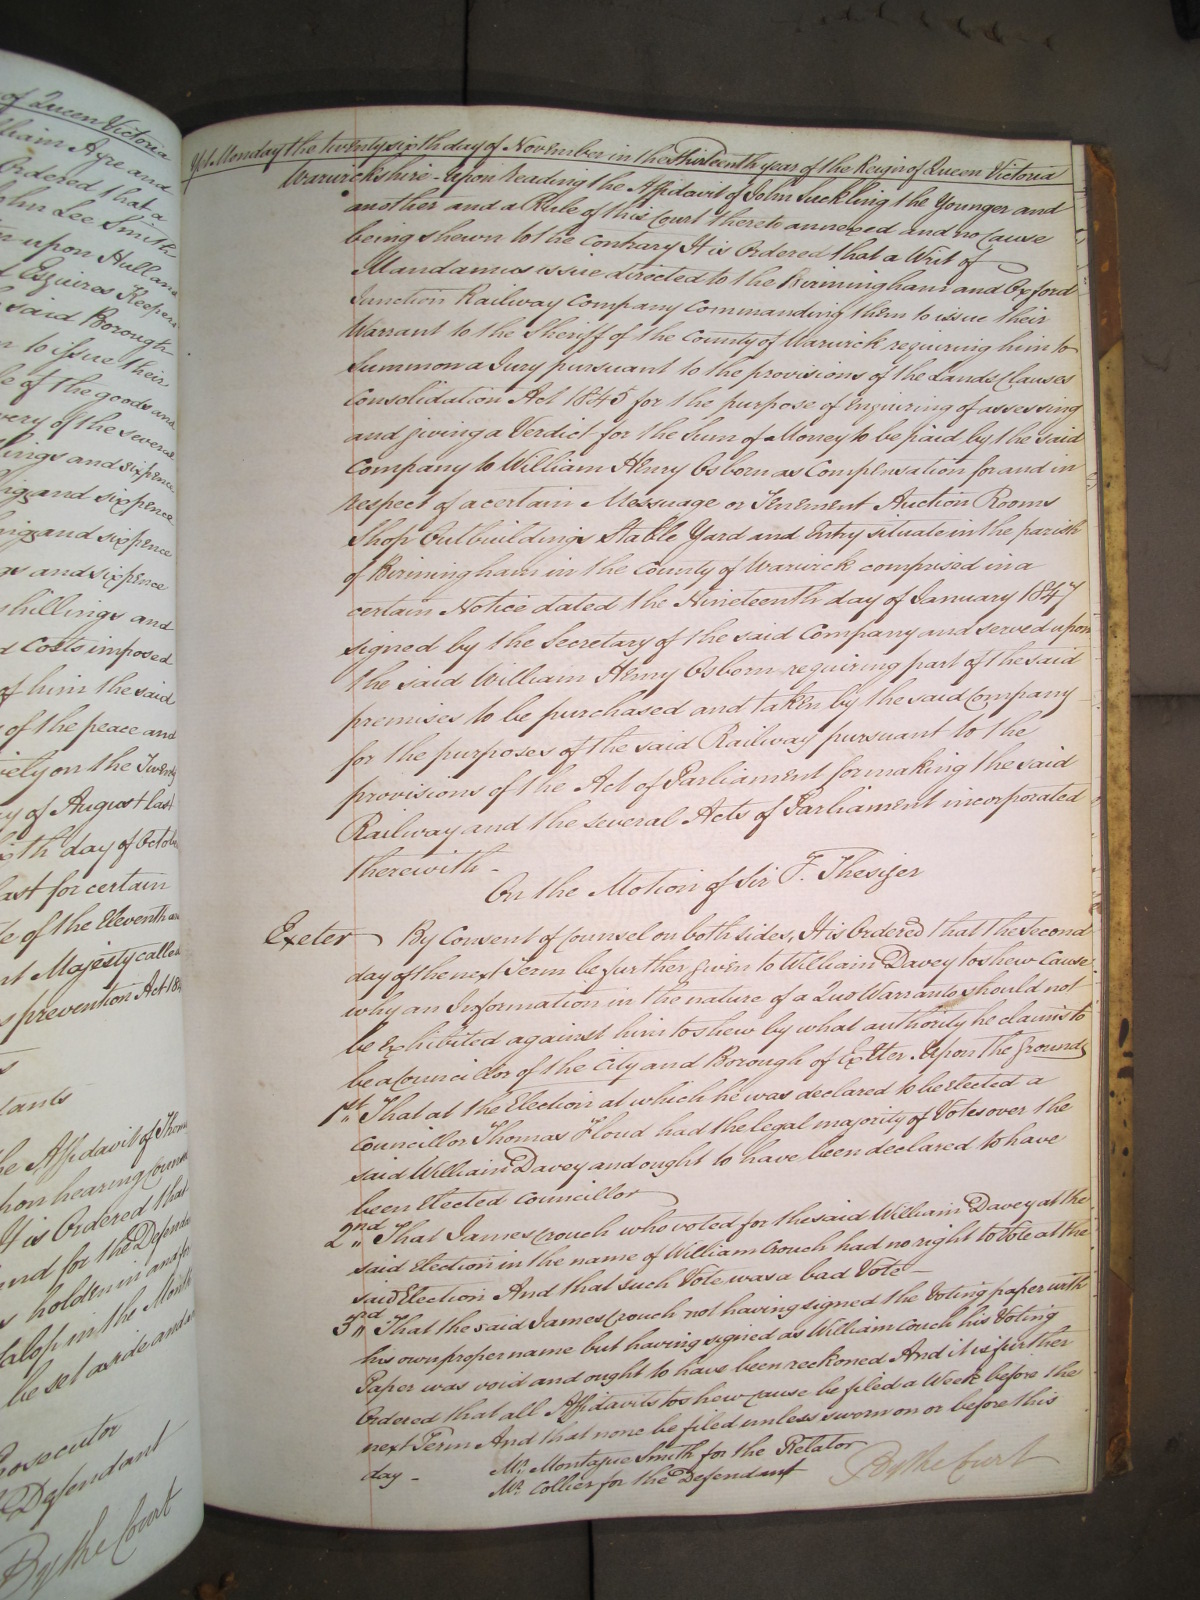 of Queen Victoria
William Ayre and
Ordered that a
John Lee Smith
upon Hull and
Esquires Keepers
said Borough
to issue their
of the goods and
very of the several
lings and sixpence
ing and sixpence
ing and sixpence
gs and sixpence
shillings and
d Costs imposed
of him the said
of the peace and
vely on the Twenty
y of August last
th day of Octobe
last for certain
te of the Eleventh an
nt Majesty called
s prevention Act 184
dants
he Affidavit of Thom
pon hearing Couns
It is Ordered that
and for the Defenda
holden in and for
alop in the Month
be set aside and
Prosecutor
Defendant
By the Court
Yet Monday the twenty sixth day of November in the Thirteenth year of the Reign of Queen Victoria
Warwickshire - Upon Reading the Affidavit of John Suckling the Younger and
another and a Rule of this Court thereto annexed and no Cause
being shewn to the Contrary It is Ordered that a Writ of
Mandamus issue directed to the Birmingham and Oxford
Junction Railway Company Commanding them to issue their
Warrant to the Sheriff of the County of Warwick requiring him to
Summon a Jury pursuant to the provisions of the Lands Clauses
Consolidation Act 1845 for the purpose of enquiring of assessing
and giving a Verdict for the Sum of Money to be paid by the said
Company to William Henry Osborn as Compensation for and in
respect of a certain Messuage or Tenement Auction Rooms
Shop Outbuildings Stable Yard and Entry situate in the parish
of Birmingham in the County of Warwick comprised in a
certain Notice dated the Nineteenth day of January 1847
signed by the Secretary of the said Company and served upon
the said William Henry Osborn requiring part of the said
premises to be purchased and taken by the said Company
for the purposes of the said Railway pursuant to the
provisions of the Act of Parliament for making the said
Railway and the several Acts of Parliament incorporated
therewith -
On the Motion of Sir F. Thesiger
Exeter By Consent of Counsel on both sides, It is Ordered that the Second
day of the next Term be further given to William Davey to shew Cause
why an Information in the nature of a Quo Warranto should not
be exhibited against him to shew by what authority he claims to
be a Councillor of the City and Borough of Exeter. Upon the Grounds
1st,, That at the Election at which he was declared to be Elected a
Councillor Thomas Floud had the legal majority of Votes over the
said William Davey and ought to have been declared to have
been Elected Councillor
2nd,, That James Crouch who voted for the said William Davey at the
said Election in the name of William Crouch had no right to Vote at the
said Election And that such Vote was a bad Vote
3rd,, That the said James Crouch not having signed the Voting paper with
his own proper name but having signed as William Couch his Voting
Paper was void and ought to have been reckoned And it is further
Ordered that all Affidavits to shew cause be filed a Week before the
next Term And that none be filed unless sworn on or before this
day - Mr. Montague Smith for the Relator
Mr. Collier for the Defendant By the Court